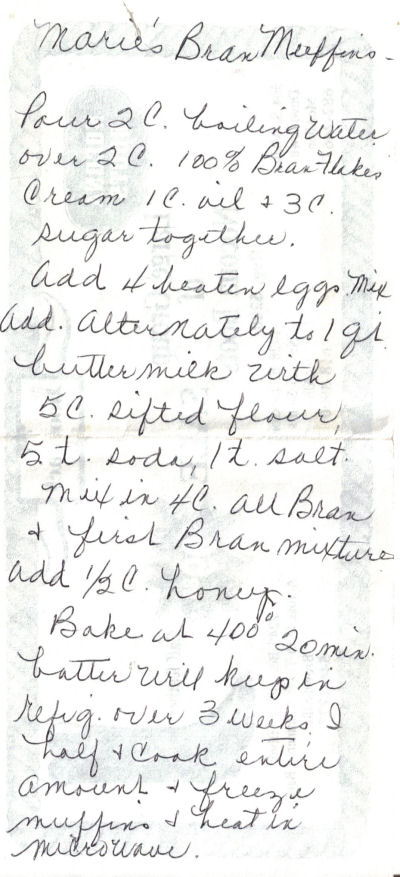 Marie's Bran Muffins -
Pour 2 C. boiling water
over 2 C. 100% Bran Flakes
Cream 1 C. oil & 3 C.
sugar together.
Add 4 beaten eggs. Mix
Add. Alternately to 1 qt.
buttermilk with
5 C. sifted flour,
5 t. soda, 1 t. salt.
Mix in 4 C. all Bran
& first Bran mixture
add 1/2 C. honey.
Bake at 400° 20 min.
batter will keep in
refig. over 3 weeks. I
half & cook entire
amount & freeze
muffins & heat in
microwave.